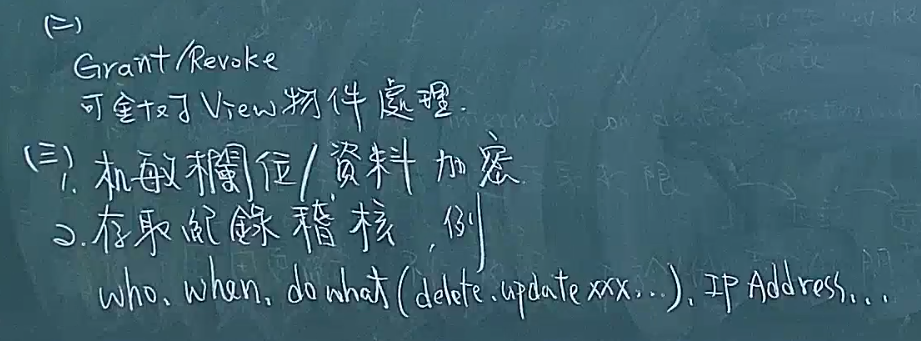 (二)
Grant/Revoke
可針对View物件處理.
(三)
1. 机敏欄位/資料加密
2. 存取紀錄稽核,例
who、when、do what(delete、update xxx...)、IP Address...